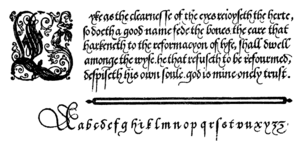 Lyke as the clearnesse of the eyes reioyseth the herte,
so doeth a good name fede the bones. the eare that
harkeneth to the reformacyon of lyfe, shall dwell
amonge the wyse. he that refuseth to be refourmed,
despiseth his own soule. god is mine onely trust.
A a b c d e f g h i k l m n o p q r s s t v u x y z